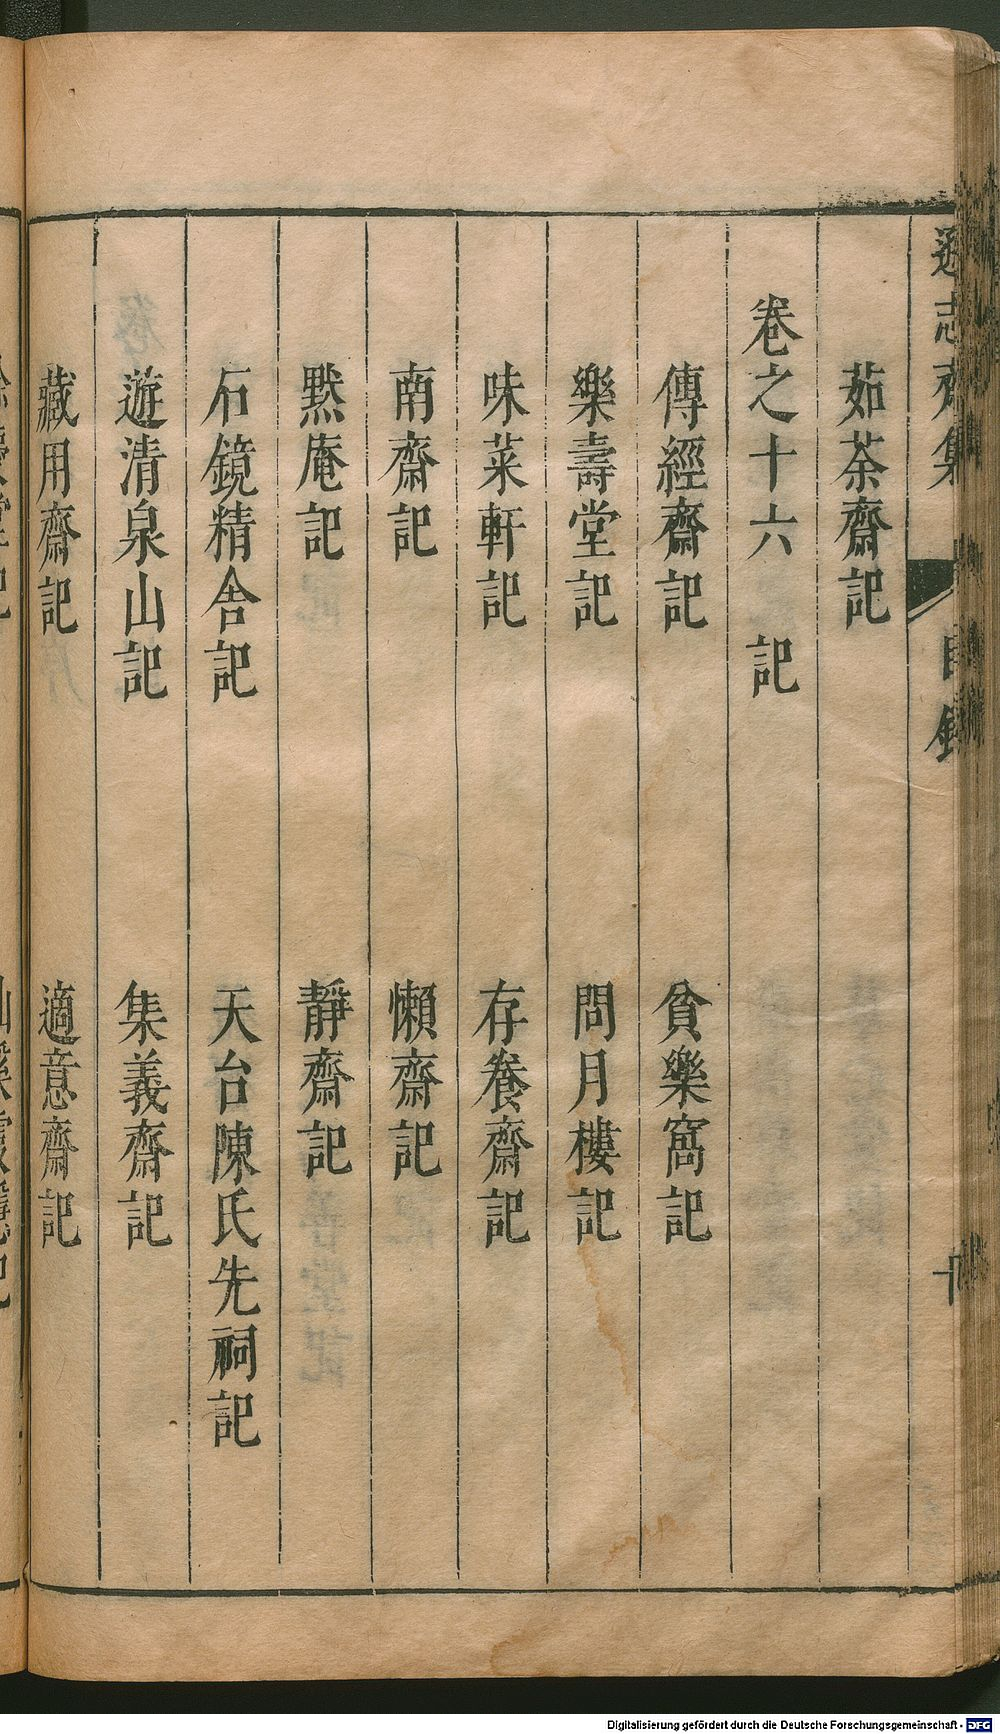 遜志齋集
目錄
茹荼齋記
卷之十六 記
傳經齋記 貧樂窩記
樂壽堂記 問月樓記
味菜軒記 存養齋記
南齋記 懶齋記
黙庵記 靜齋記
石鏡精舍記 天台陳氏先祠記
遊清泉山記 集義齋記
藏用齋記 適意齋記
Digitalisierung gefördert durch die Deutsche Forschungsgemeinschaft - DFG